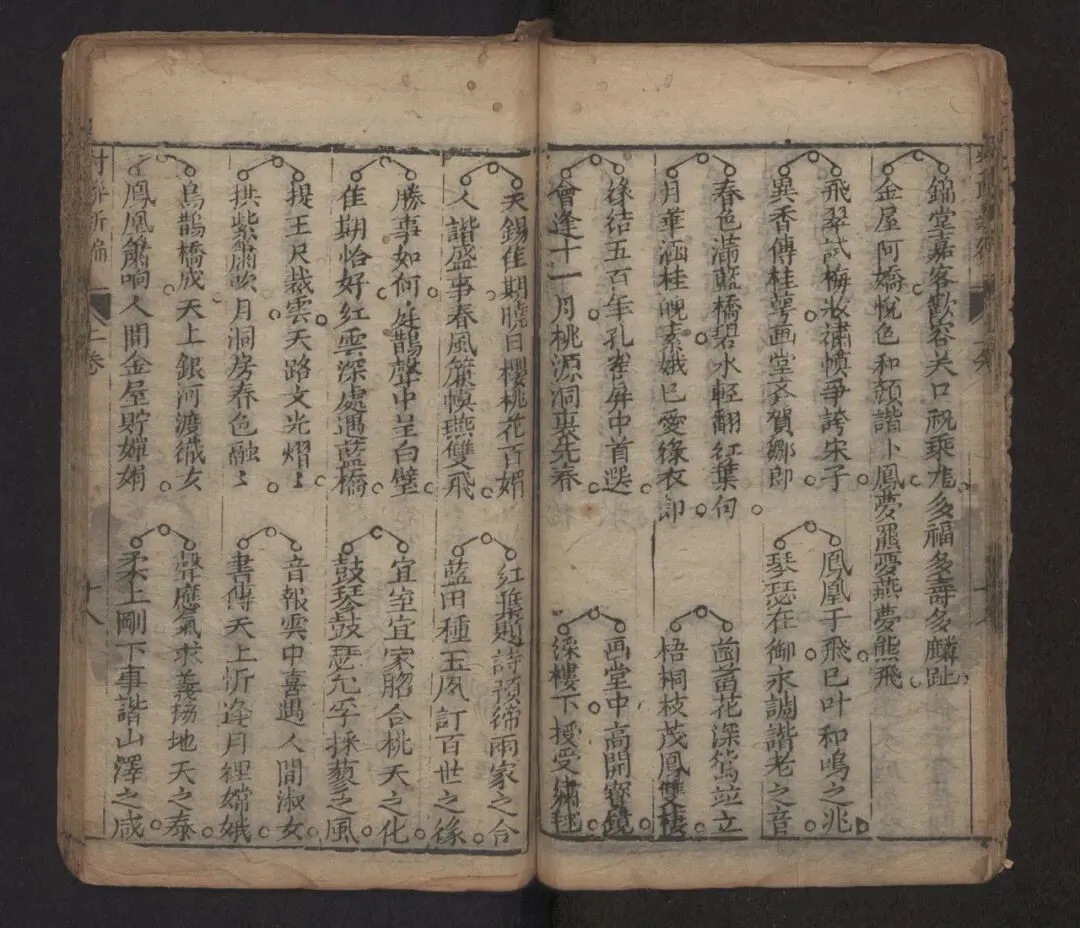 錦堂嘉客歡容关口祝乘龙多福多壽多麟趾
金屋阿嬌悅色和顏諧卜鳳夢羆夢燕夢熊飛
飛翠試梅妝繡幙爭誇宋子
異香傳桂萼画堂齐賀鄒郎
鳳凰于飛已叶和鳴之兆
琴瑟在御永調諧老之音
春色滿藍橋碧水輕翻红葉句
月華涵桂魄素娥已愛綠衣郎
菡萏花深鴛並立
梧桐枝茂鳳雙棲
缘結五百年孔雀屏中首选
會逢十一月桃源洞裏先春
画堂中高開寶鏡
綵樓下授受綉毬
天錫佳期曉日櫻桃花百媚
人諧盛事春風簾幙燕雙飛
红葉題詩預締兩家之合
藍田種玉夙訂百世之缘
勝事如何庭鵲聲中呈白璧
佳期恰好红雲深處遇藍橋
宜室宜家脗合桃夭之化
鼓琴鼓瑟允孚採蘩之風
提玉尺裁雲天路文光熠〻
拱紫簫吹月洞房春色融〻
音報雲中喜遇人間淑女
書傳天上忻逢月裡嫦娥
烏鵲橋成天上銀河渡織女
鳳凰簫响人間金屋貯嬋娟
聲應氣求義揚地天之泰
柔上剛下事諧山澤之咸
對聯新編
上卷
十八